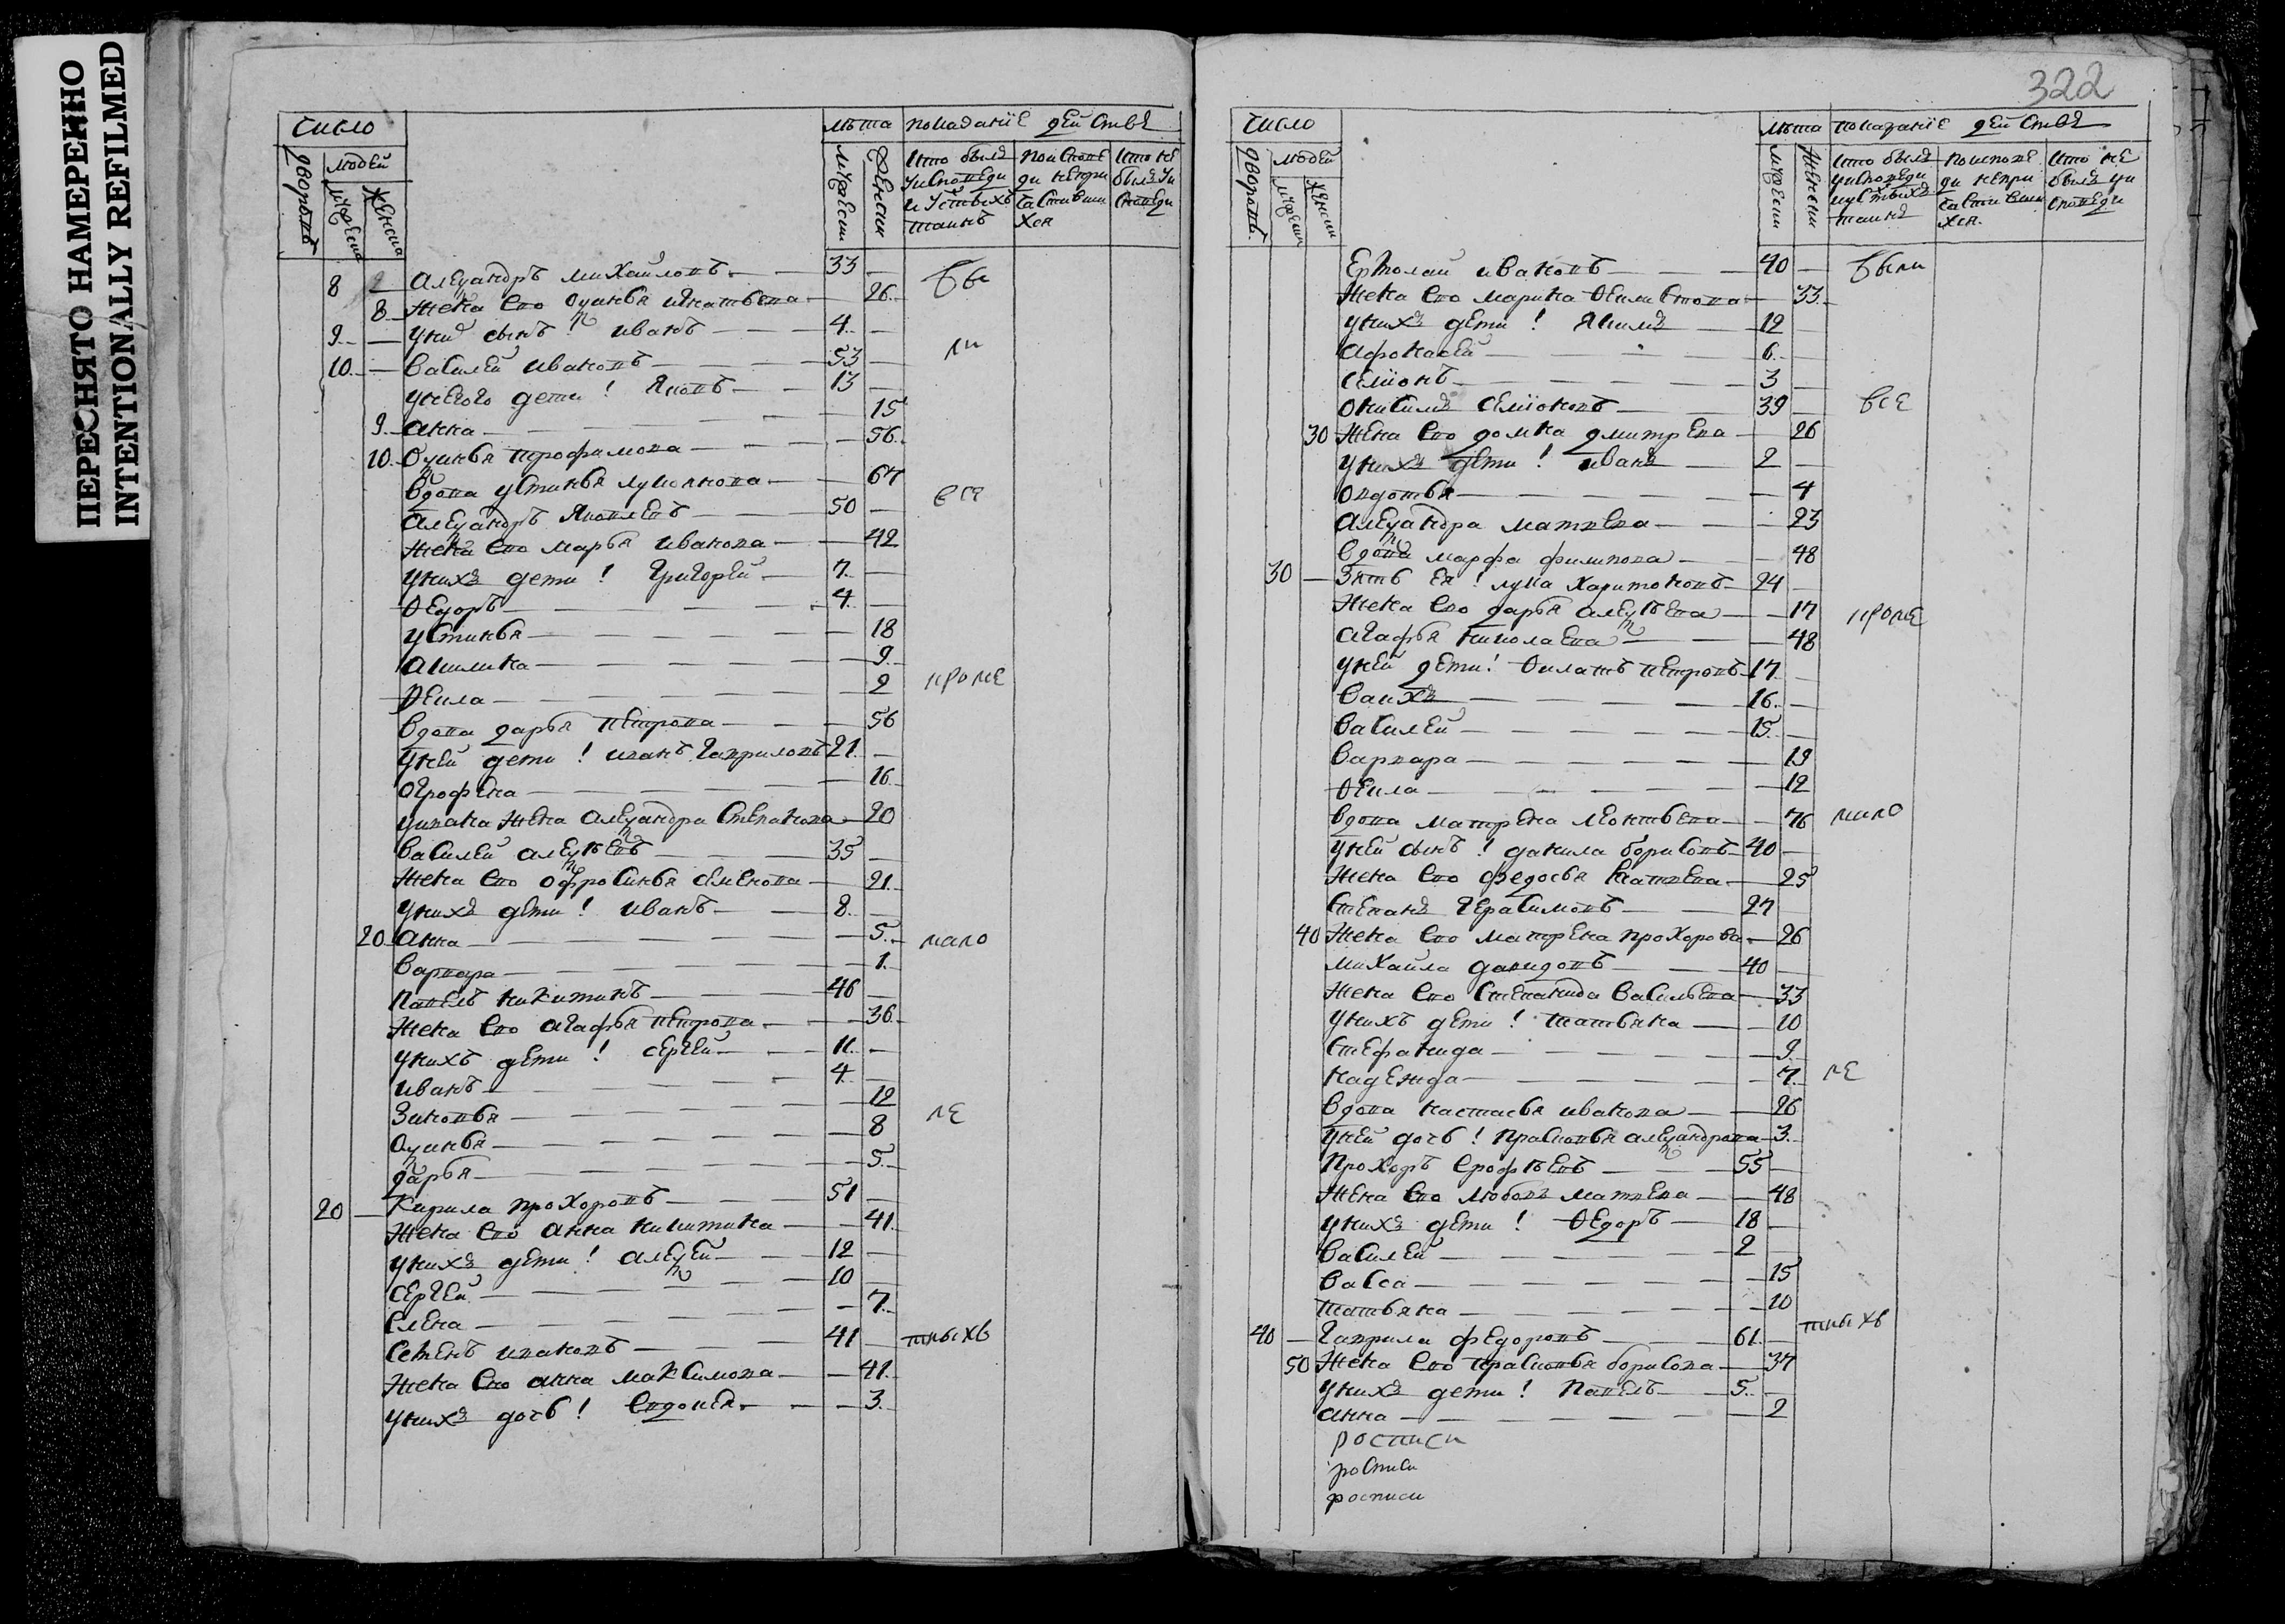 ПЕРЕСНЯТО НАМЕРЕННО
INTENTIONALLY REFILMED
число
лѣта показанїе дейСтвъ
дворовъ
людей
мужеска
женска
мужески
женски
кто былъ уисповеди иуСтыхъ таинъ
поисповеди непричаСтившихся
кто небылъ уисповеди
8 алеѯандръ михайловъ 33 бы
8 жена его оѯинья игнатьева 26
9 унид сынъ иванъ 4
10 василей ивановъ 53 ли
унего дети! яковъ 13
9 анна 15
10 оѯинья трофимова 56
вдова устинья лукоянова 67
алеѯандръ яковлевъ 50 все
жена его марья иванова 42
унихъ дети! григорей 7
ѳедоръ 4
устинья 18
акилина 9
ѳекла 2 кроме
вдова дарья петрова 56
уней дети! иванъ гаврилов 21
огрофена 16
уивана жена алеѯандра степанова 20
василей алеѯѣевъ 35
жена его офросинья семенова 21
унихъ дети! иванъ 8
20 анна 5 мало
варвара 1
павелъ никитинъ 46
жена его агафья петрова 36
унихъ дети! сергей 11
иванъ 4
зиновья 12 ле
оѯинья 8
дарья 5
20 Кирила прохоровъ 51
жена его анна никитина 41
унихъ дети! алеѯей 12
сергей 10
елена 7
семенъ ивановъ 41 тныхъ
жена его анна максимова 41
унихъ дочь! евдокея 3
322
число
лѣта показанїе дейСтвъ
дворовъ
людей
мужески
женски
мужески
женски
кто былъ уисповеди иуСтыхъ таинъ
поисповеди непричаСтившихся
кто не былъ уисповеди
ермолай ивановъ 40 были
жена его марина ѳеилистова 33
унихъ дети! якимъ 12
афонасей 6
семїонъ 3
онисимъ семїоновъ 39 все
30 жена его домна дмитрева 26
унихъ дети! иванъ 2
овдотья 4
алеѯандра матвева 23
вдова марфа филипова 48
30 зять ея! лука харитоновъ 24
жена его дарья алеѯѣева 17 кроме
агафья николаева 48
уней дети! ѳилатъ петровъ 17
ваихъ 16
василей 15
варвара 19
ѳекла 12
вдова матрена леонтьева 76 мало
уней сынъ! данила борисовъ 40
жена его федосья матвева 25
степанъ герасимовъ 27
40 жена его матрена прохорова 26
михайла давидовъ 40
жена его степанида васильева 33
унихъ дети! татьяна 10
стефанида 9
надежда 7 ле
вдова настасья иванова 26
уней дочь! прасковья алеѯандрова 3
прохоръ ерофѣевъ 55
жена его любовъ матвева 48
унихъ дети! ѳедоръ 18
василей 2
васса 15
татьяна 10
40 гаврила федоровъ 61 тныхъ
50 жена его прасковья борисова 37
унихъ дети! павелъ 5
анна 2
росписи
росписи
росписи